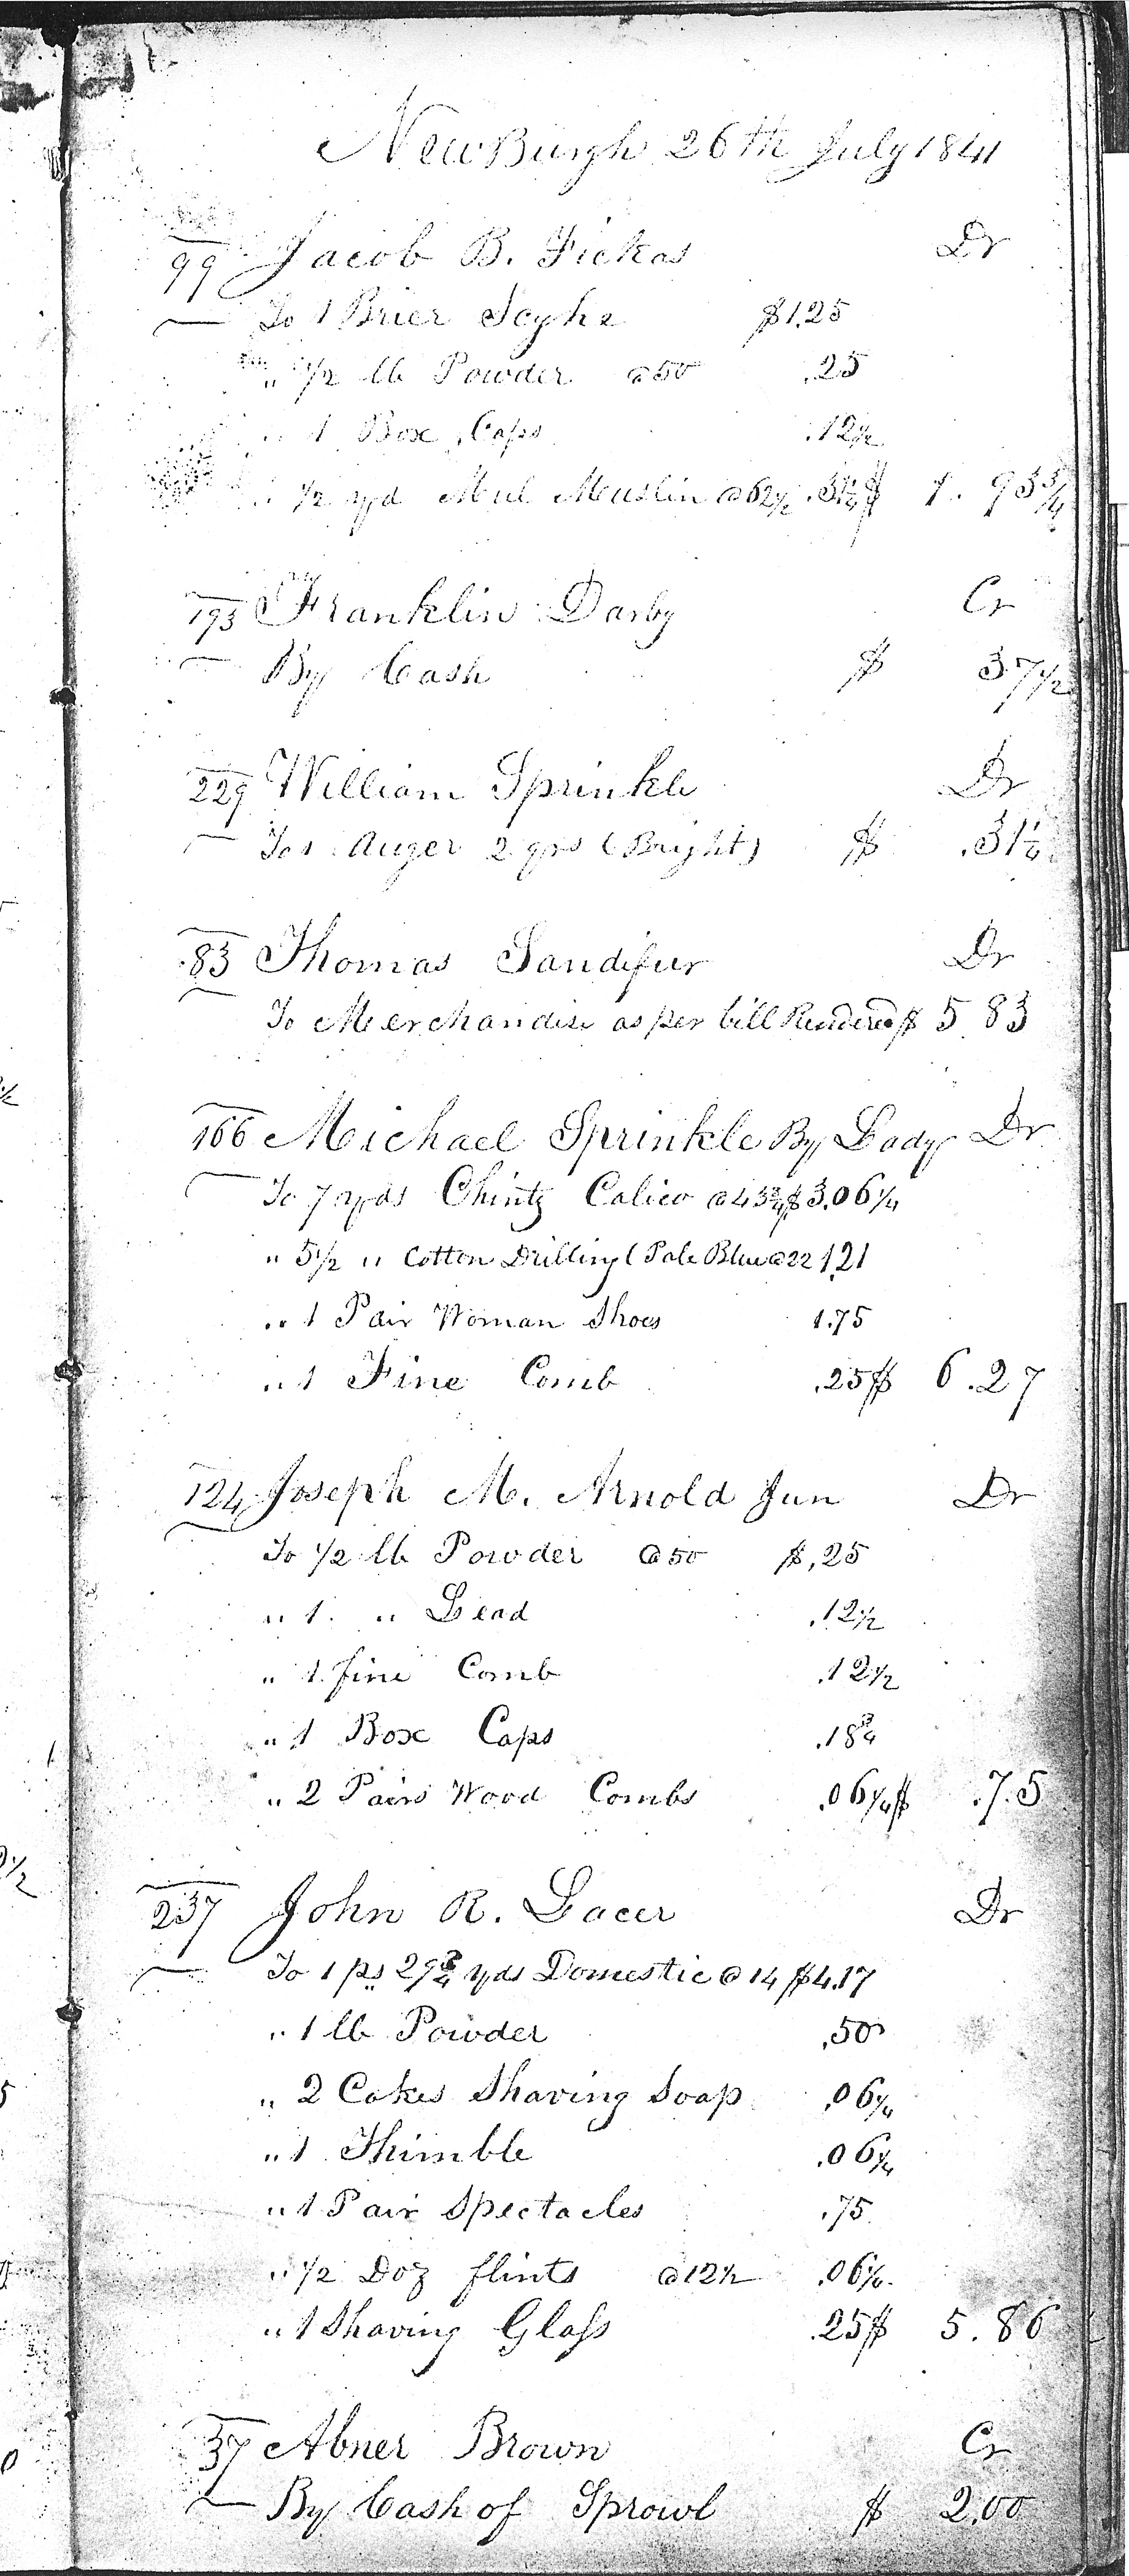 NewBurgh 26th July 1841
99 Jacob B. Fickas Dr
To 1 Brier Scyhe $1.25
" 1/2 lb Powder @50 .25
" 1 Box Caps .12 1/2
" 1/2 yd Mul Muslin @62 1/2 .31 1/4 $ 1. 93 3/4
193 Franklin Darby Cr
By Cash $ 37 1/2
229 William Sprinkle Dr
To 1 Auger 2 qrs (Bright) $ .31 1/4
83 Thomas Sandifur Dr
To Merchandise as per bill Rendered $ 5 83
166 Michael Sprinkle By Lady Dr
To 7 yds Chintz Calico @43 3/4 $3.06 1/4
" 5 1/2 " Cotton Drilling (Pale Blue @22 1.21
" 1 Pair Woman Shoes 1.75
" 1 Fine Comb .25 $ 6.27
124 Joseph M. Arnold Jun Dr
To 1/2 lb Powder @50 $.25
" 1 " Lead .12 1/2
" 1 fine Comb .12 1/2
" 1 Box Caps .18 3/4
" 2 Pairs Wood Combs .06 1/4 $ .75
237 John R. Lacer Dr
To 1 ps 29 3/4 yds Domestic @14 $4.17
" 1 lb Powder .50
" 2 Cakes Shaving Soap .06 1/4
" 1 Thimble .06 1/4
" 1 Pair Spectacles .75
" 1/2 Doz flints @12 1/2 .06 1/4
" 1 Shaving Glass .25 $ 5.86
37 Abner Brown Cr
By Cash of Sprowl $ 2.00